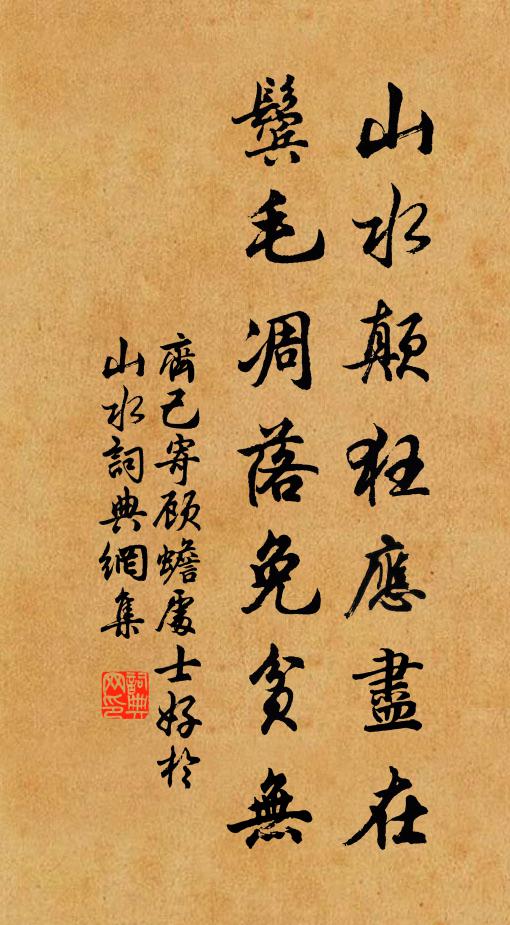 山水顛狂應盡在
鬢毛凋落免貧無
齊己寄顧蟾處士好於
山水詞典網集
詞典网印